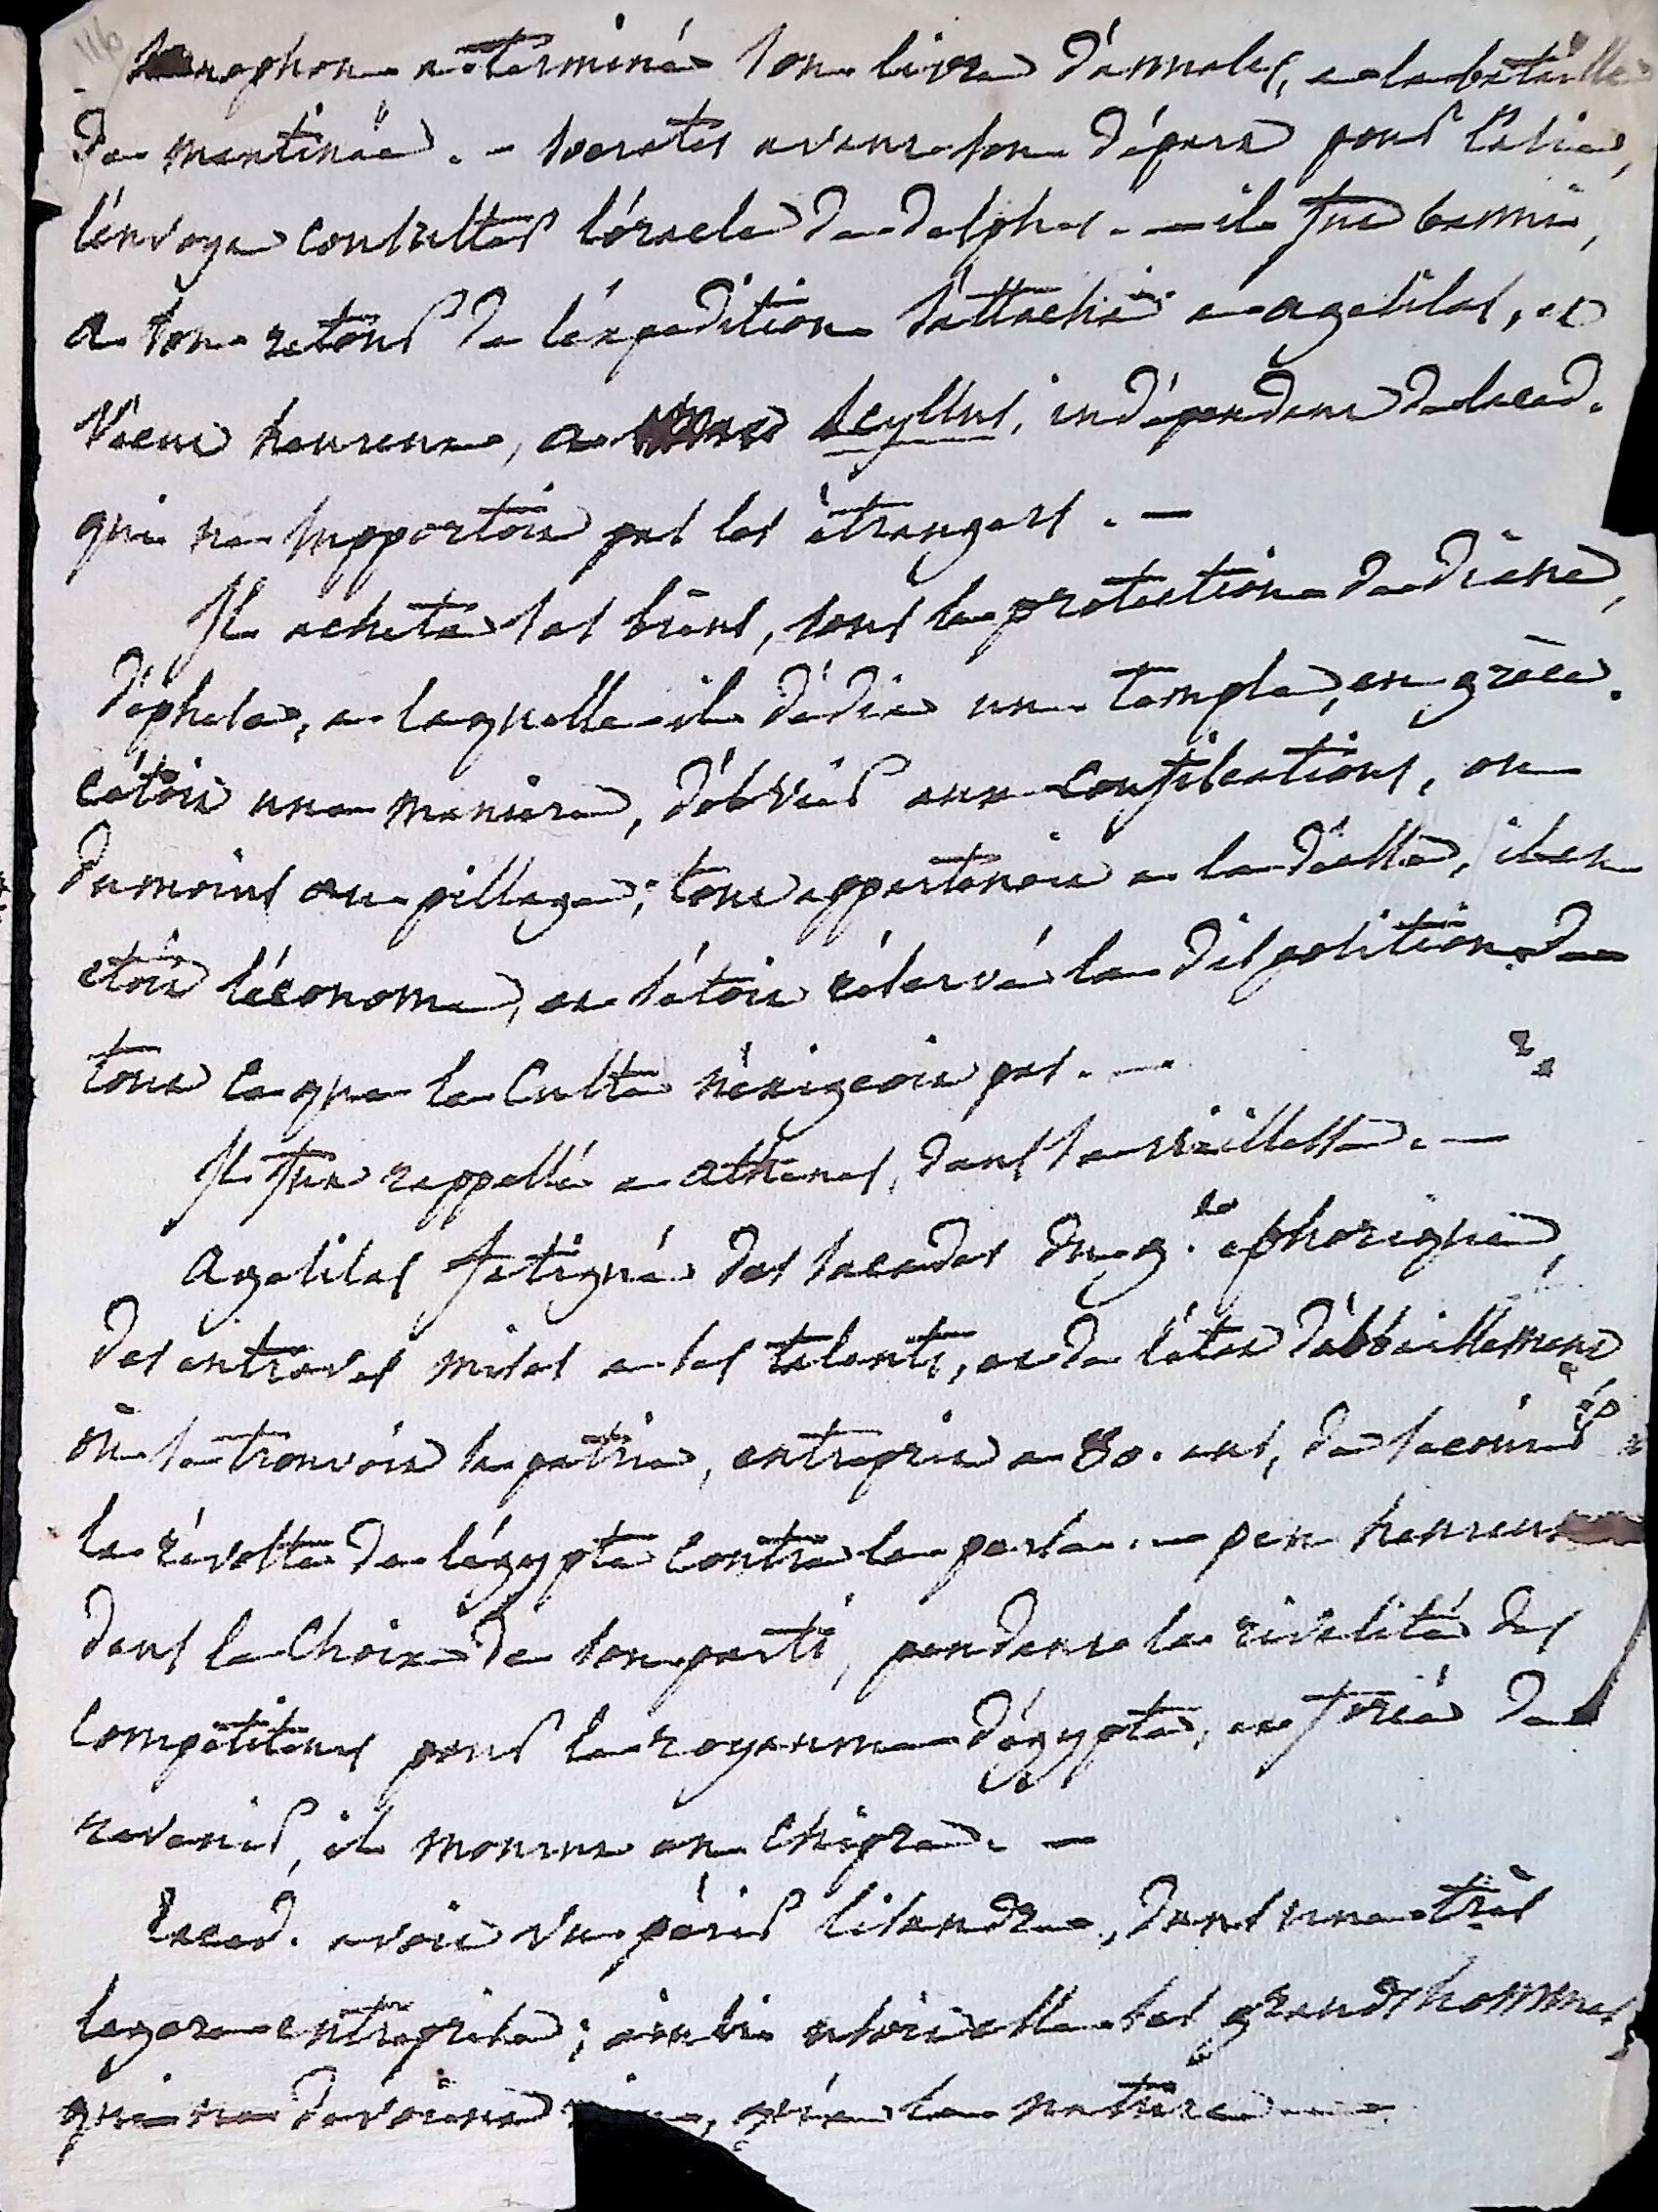 116
xenophon a terminé son livre d'annales, a la bataille
de mantinée. - socrates avant son départ pour l'asie,
l'envoya consulter l'oracle de delphes. - il fut banni,
a son retour de l'expedition s'attacha a agesilas, et
vécut heureux, a scyllus, indépendant de laced.
qui ne supportoit pas les étrangers. -
Il acheta ses biens, sous la protection de diane,
d'éphese, a laquelle il dédia un temple, en grèce.
c'étoit une maniere, d'obvier aux confiscations, ou
du moins au pillage; tout appartenoit a la déesse, il en
etoit l'économe, et s'étoit réservé la disposition de
tout ce que le culte n'exigeoit pas. -
Il fut rappellé a athenes, dans sa vieillesse. -
agesilas fatigué des saccades du g.t ephorique,
des entraves mises a ses talents, et de l'état d'abbaissement
où se trouvoit sa patrie, entreprit a 80. ans, de secourir
la révolte de l'égypte contre la perse. - peu heureux
dans le choix de son parti, pendant la rivalité des
compétiteurs pour le royaume d'égypte, et forcé de
revenir, il mourut en chipre. -
Laced. avoit vu périr lisandre, dans une très
legere entreprise; ainsi usoit elle ses grands hommes,
qui ne devoient qu'a la nature -